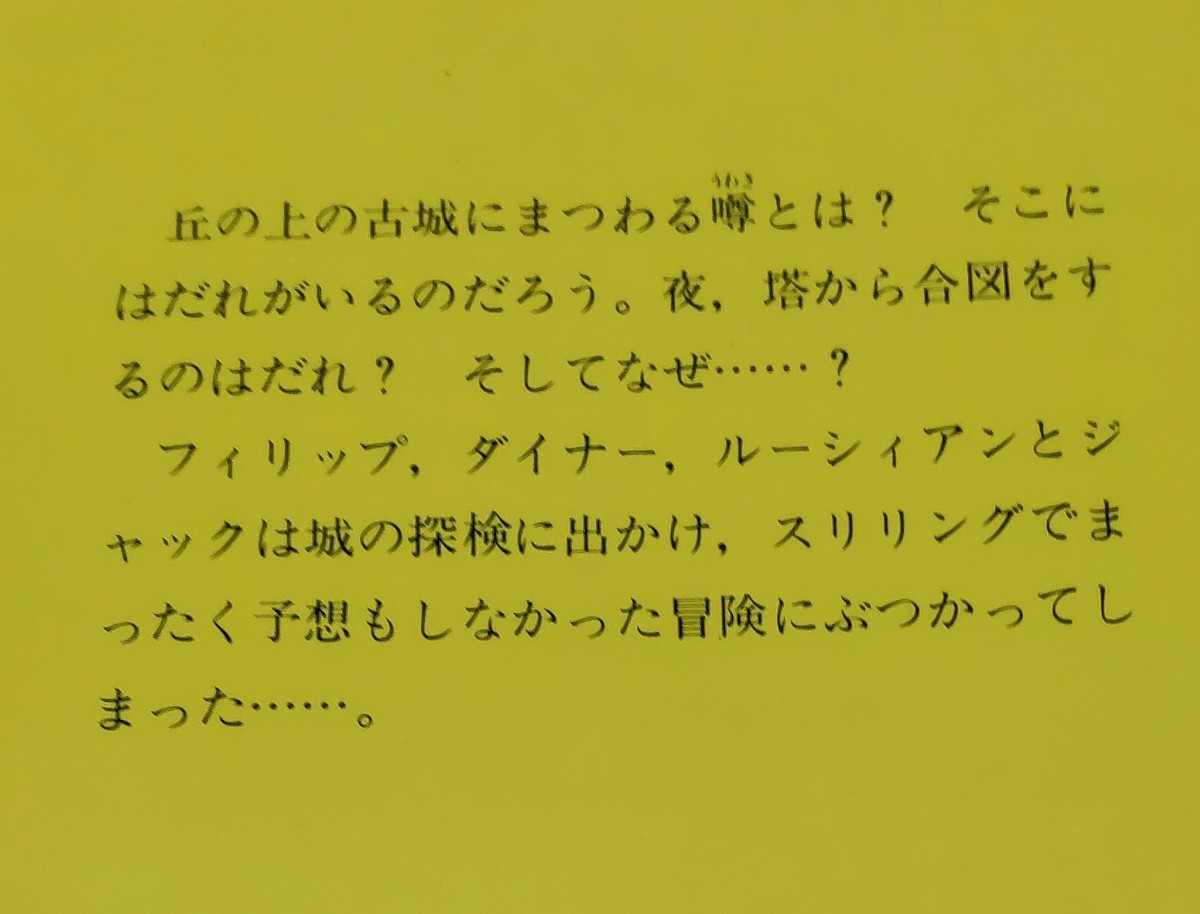 丘の上の古城にまつわる噂とは？　そこに
はだれがいるのだろう。夜，塔から合図をす
るのはだれ？　そしてなぜ……？
フィリップ，ダイナー，ルーシィアンとジ
ャックは城の探検に出かけ，スリリングでま
ったく予想もしなかった冒険にぶつかってし
まった……。